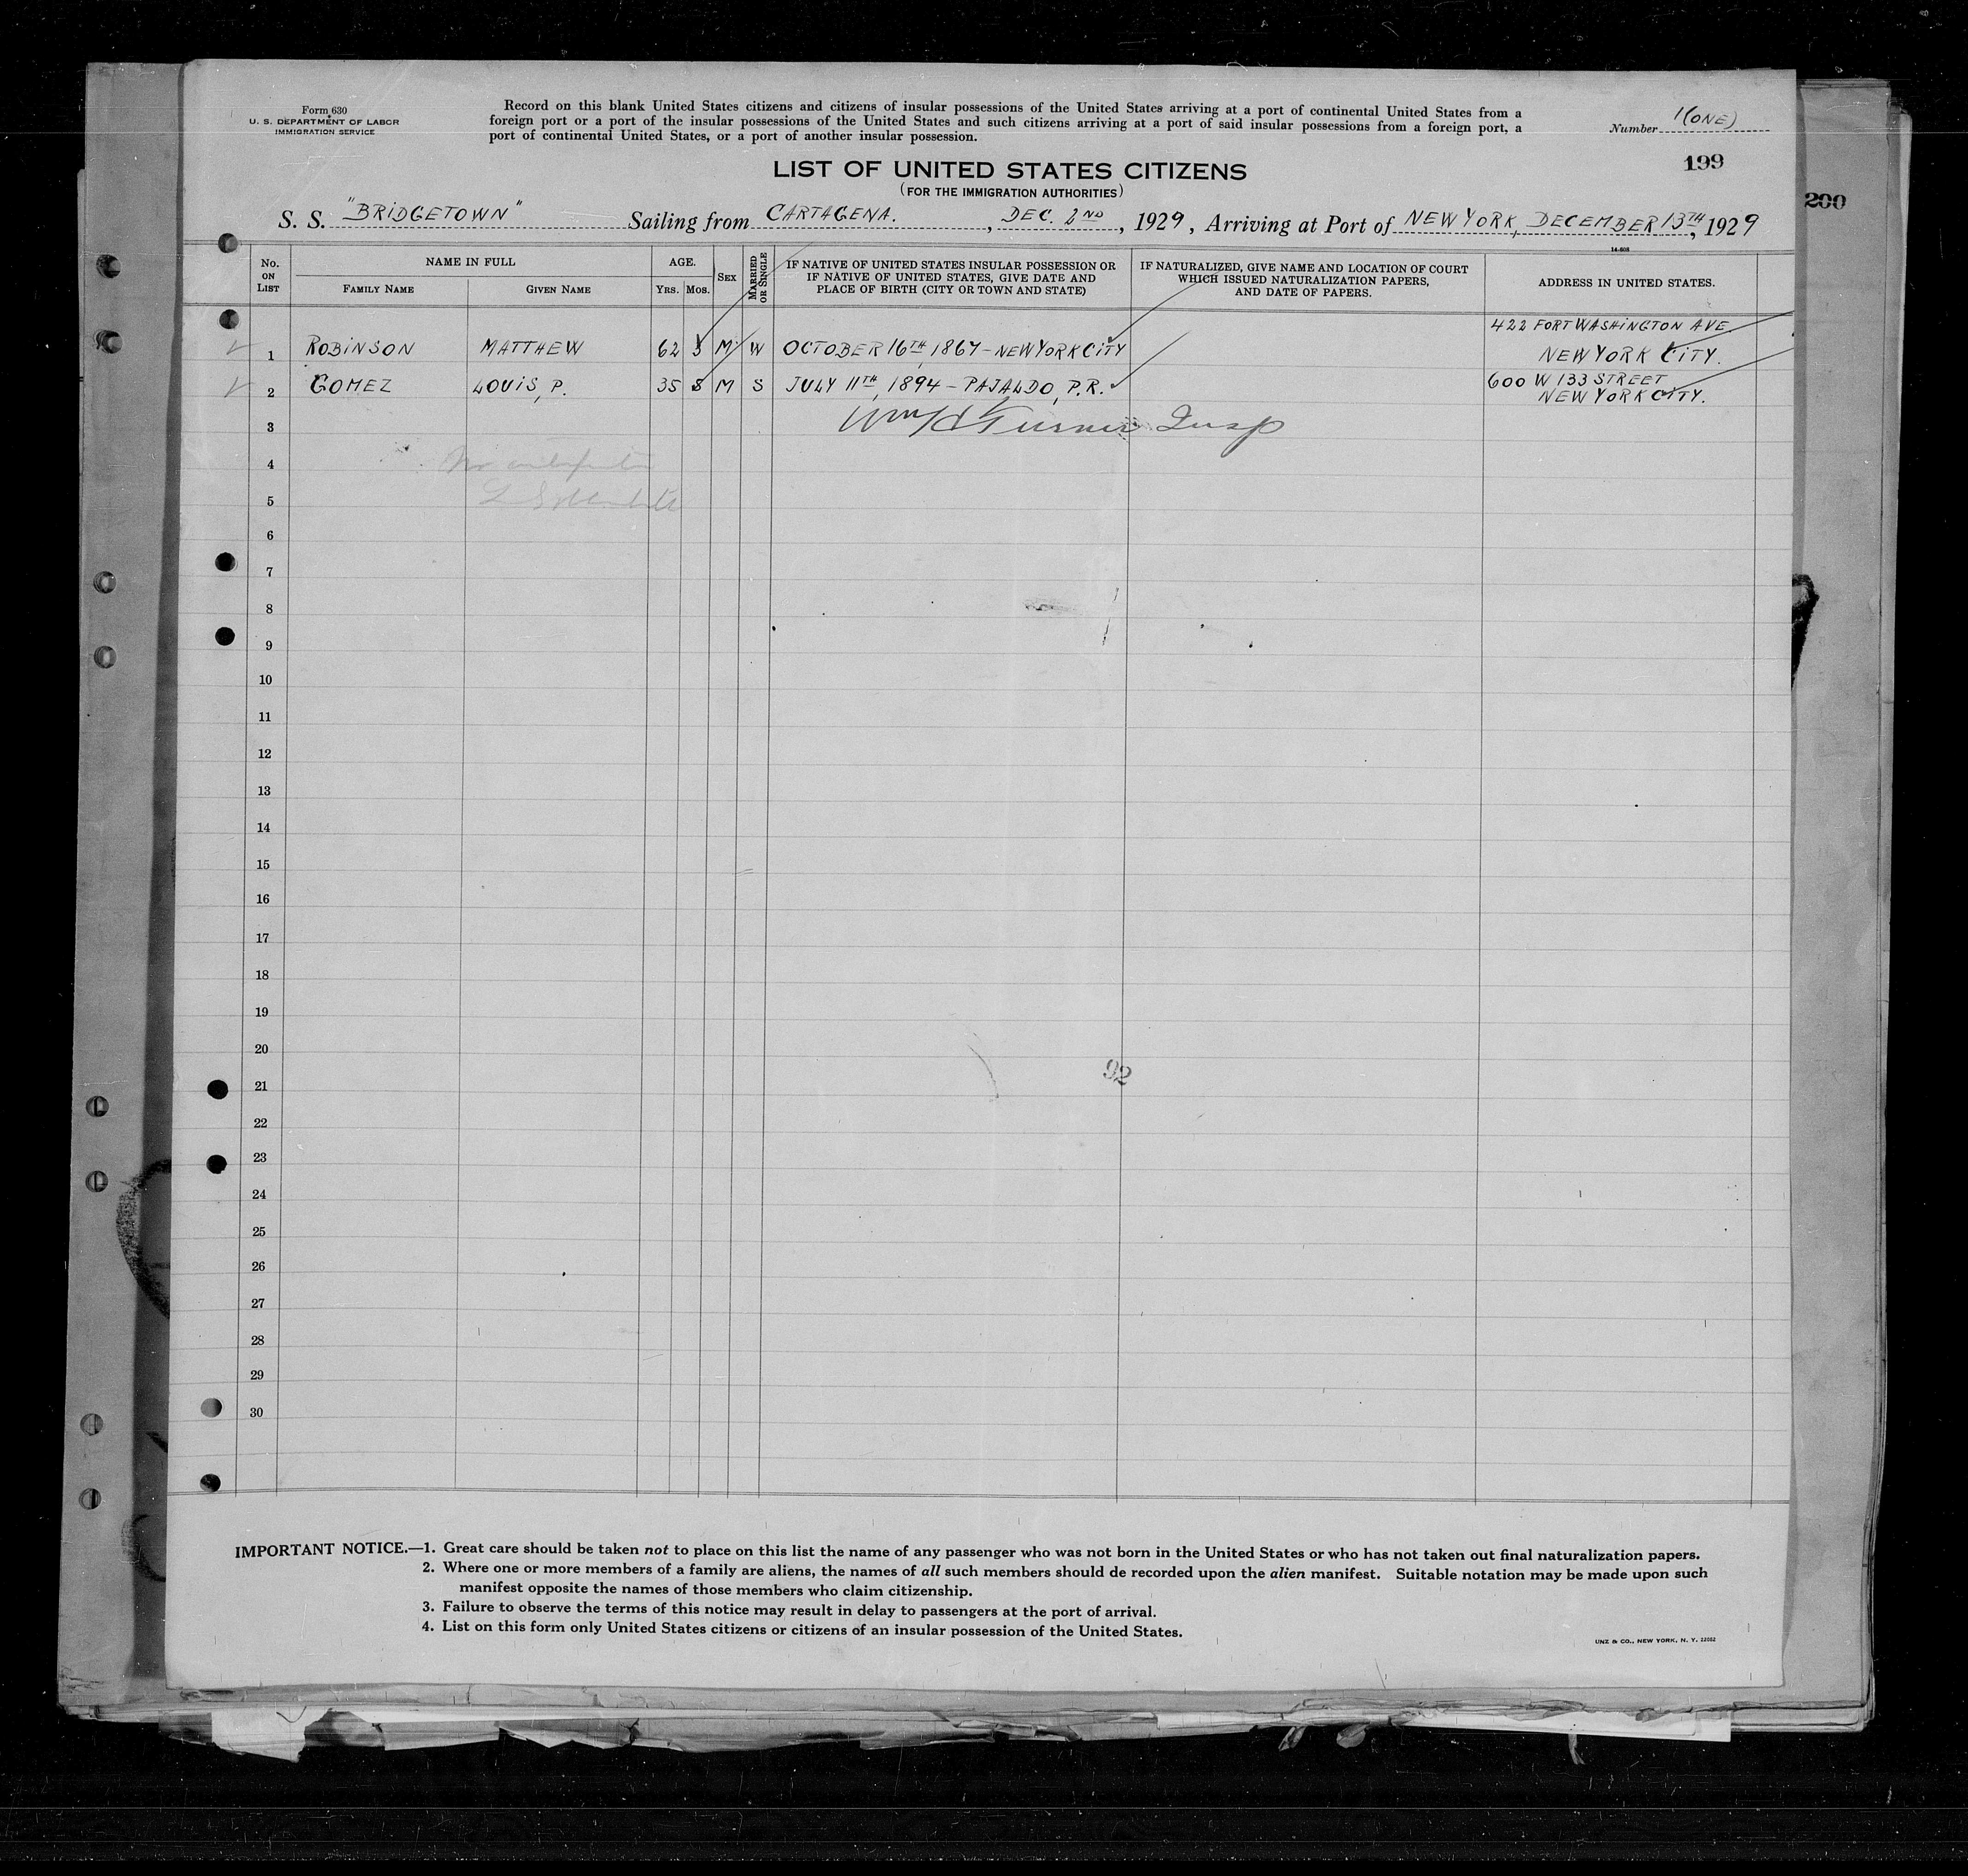 Form 630
U. S. DEPARTMENT OF LABOR
IMMIGRATION SERVICE
Record on this blank United States citizens and citizens of insular possessions of the United States arriving at a port of continental United States from a
foreign port or a port of the insular possessions of the United States and such citizens arriving at a port of said insular possessions from a foreign port, a
port of continental United States, or a port of another insular possession.
Number 1(ONE)
199
200
LIST OF UNITED STATES CITIZENS
(FOR THE IMMIGRATION AUTHORITIES)
S. S. "BRIDGETOWN" Sailing from CARTAGENA. , DEC. 2ND , 1929 , Arriving at Port of NEW YORK, DECEMBER 13TH, 1929
14-608
No. ON LIST
NAME IN FULL
FAMILY NAME
GIVEN NAME
AGE.
YRS.
MOS.
SEX
MARRIED OR SINGLE
IF NATIVE OF UNITED STATES INSULAR POSSESSION OR
IF NATIVE OF UNITED STATES, GIVE DATE AND
PLACE OF BIRTH (CITY OR TOWN AND STATE)
IF NATURALIZED, GIVE NAME AND LOCATION OF COURT
WHICH ISSUED NATURALIZATION PAPERS,
AND DATE OF PAPERS.
ADDRESS IN UNITED STATES.
422 FORT WASHINGTON AVE
1 ROBINSON MATTHEW 62 M W OCTOBER 16TH, 1867 - NEW YORK CITY NEW YORK CITY.
600 W 133 STREET
2 GOMEZ LOUIS, P. 35 M S JULY 11TH, 1894 - PAJALDO, P.R. NEW YORK CITY.
3 Turner Insp
4
5
6
7
8
9
10
11
12
13
14
15
16
17
18
19
20
92
21
22
23
24
25
26
27
28
29
30
IMPORTANT NOTICE.—1. Great care should be taken not to place on this list the name of any passenger who was not born in the United States or who has not taken out final naturalization papers.
2. Where one or more members of a family are aliens, the names of all such members should de recorded upon the alien manifest. Suitable notation may be made upon such
manifest opposite the names of those members who claim citizenship.
3. Failure to observe the terms of this notice may result in delay to passengers at the port of arrival.
4. List on this form only United States citizens or citizens of an insular possession of the United States.
UNZ & CO., NEW YORK, N. Y. 22052